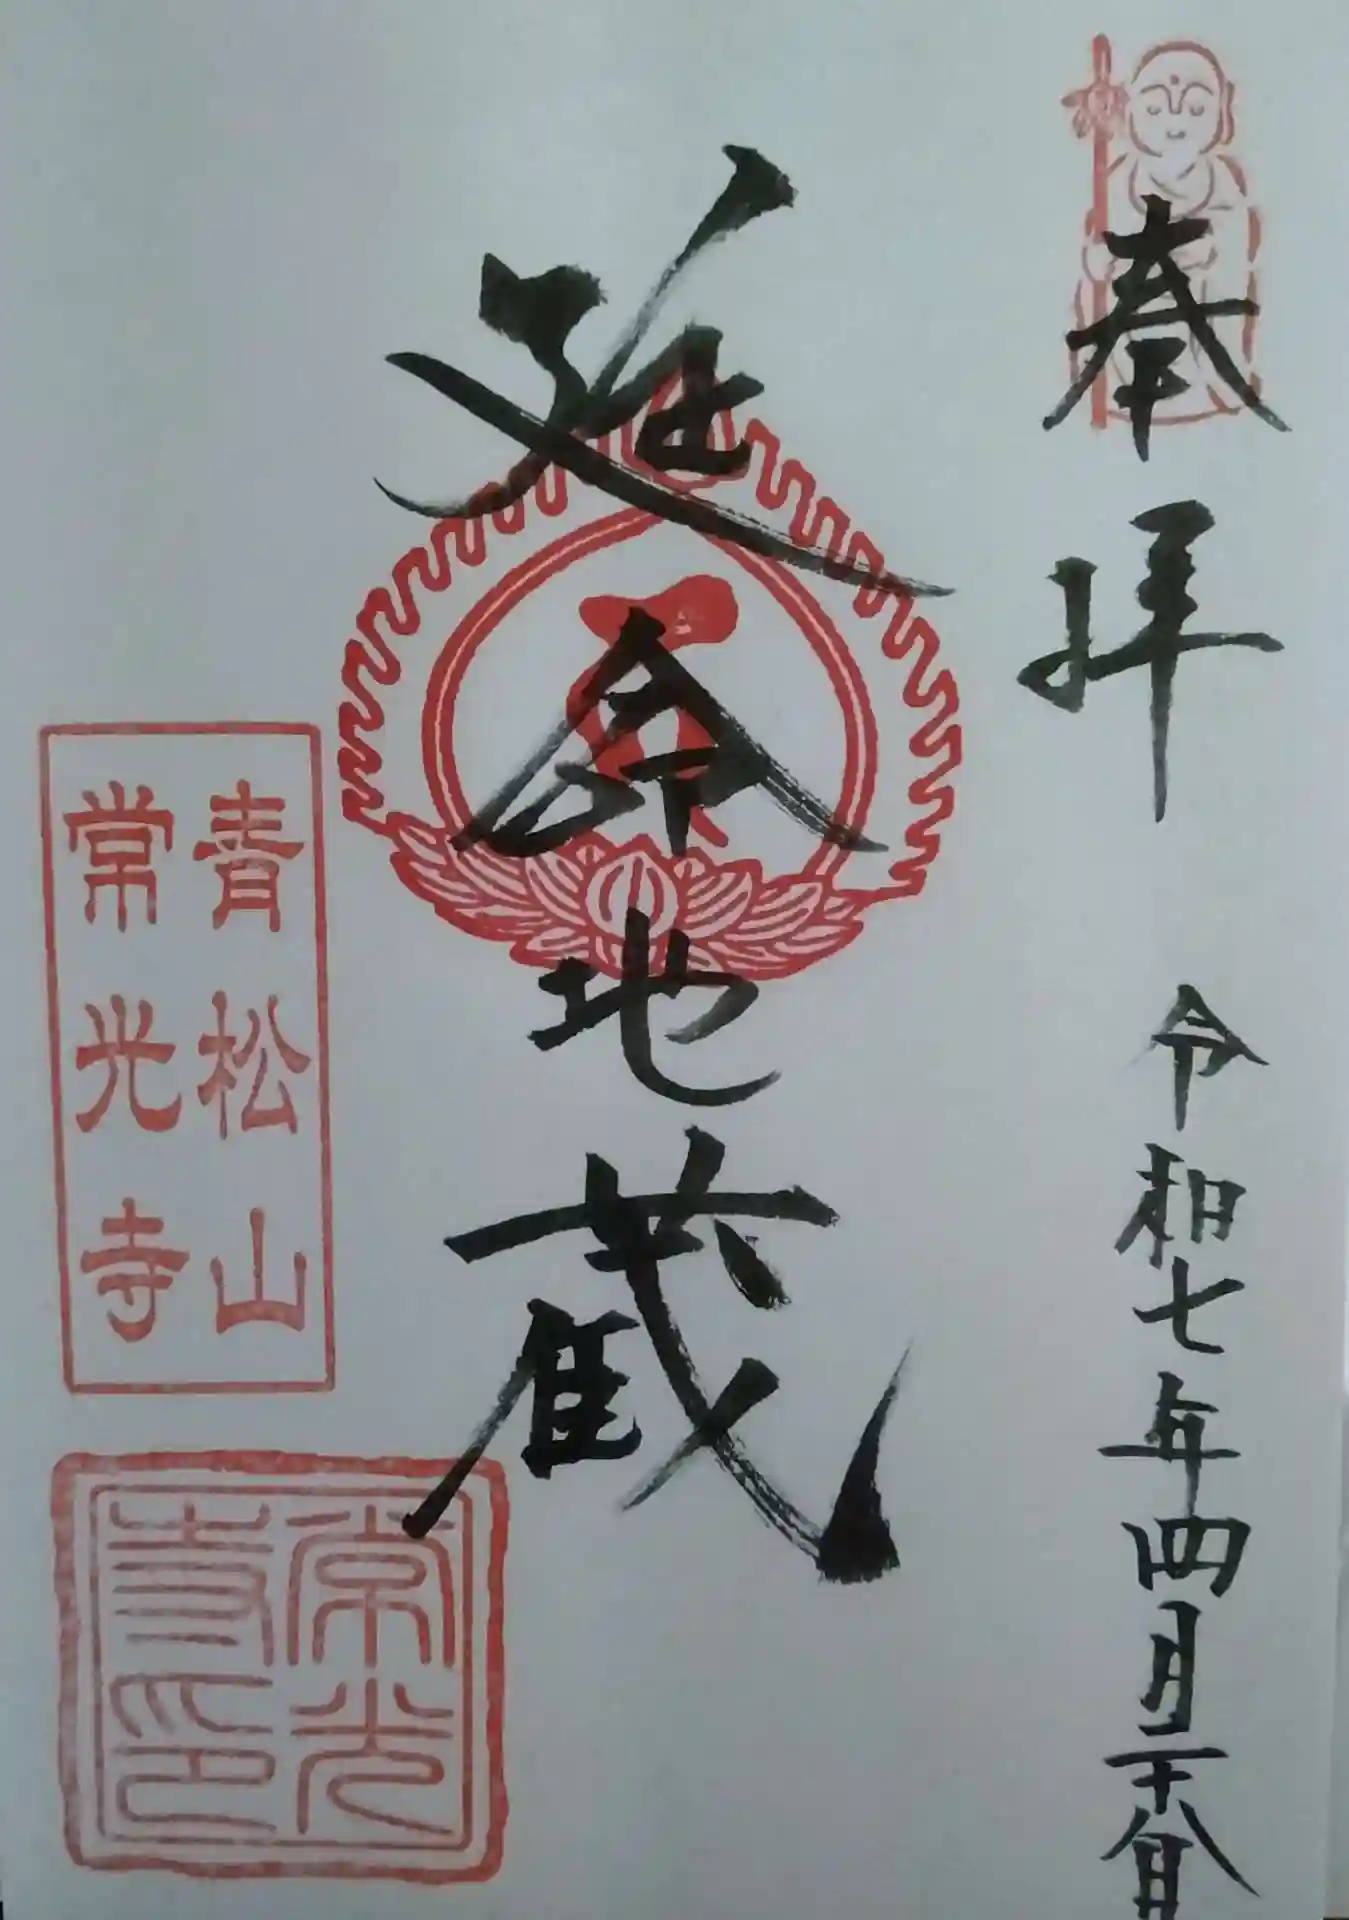 奉拝
令和七年四月二十八日
延命地蔵
青松山
常光寺
常光
寺印